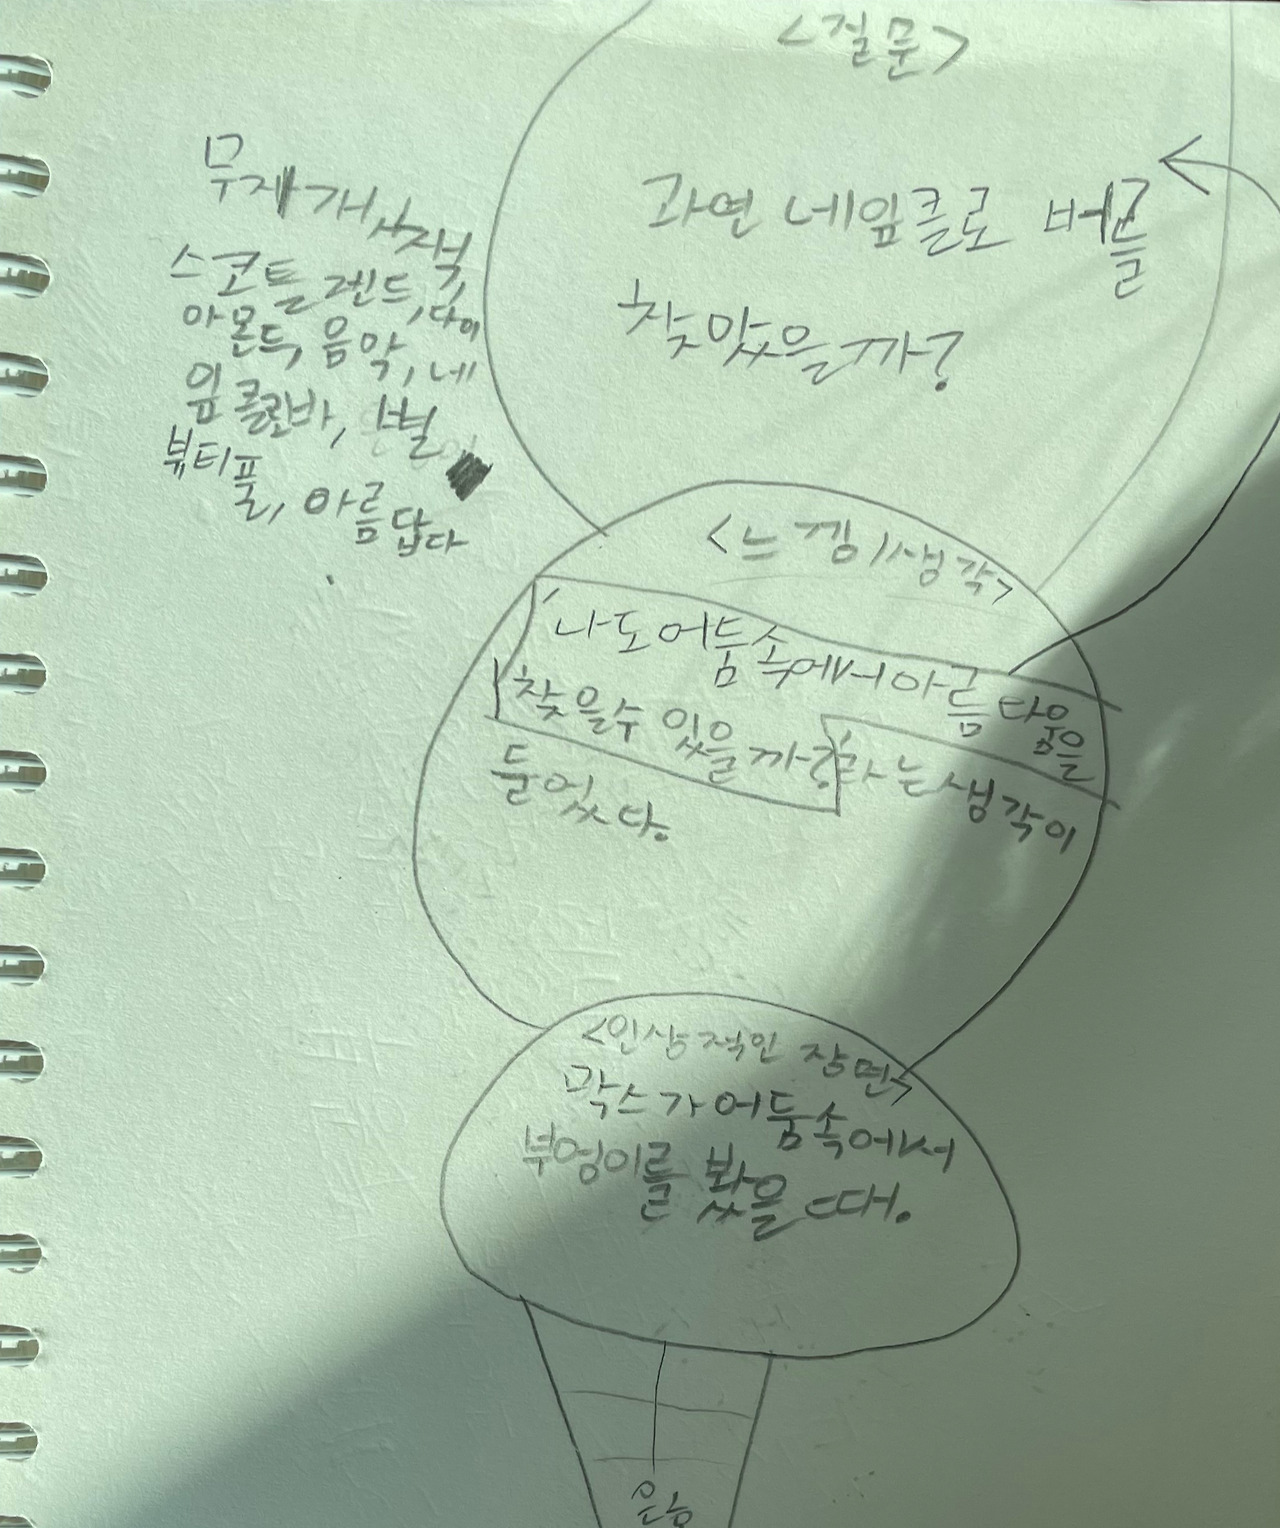 <질문>
과연 네잎클로 버를
찾았을까?
무지개, 색,
스코틀랜드, 다이
아몬드, 음악, 네
잎클로바, 별
뷰티풀, 아름답다
<느낌/생각>
'나도 어둠속에서 아름다움을
찾을수 있을까?'라는 생각이
들었다.
<인상적인 장면>
막스가 어둠속에서
부엉이를 봤을 때.